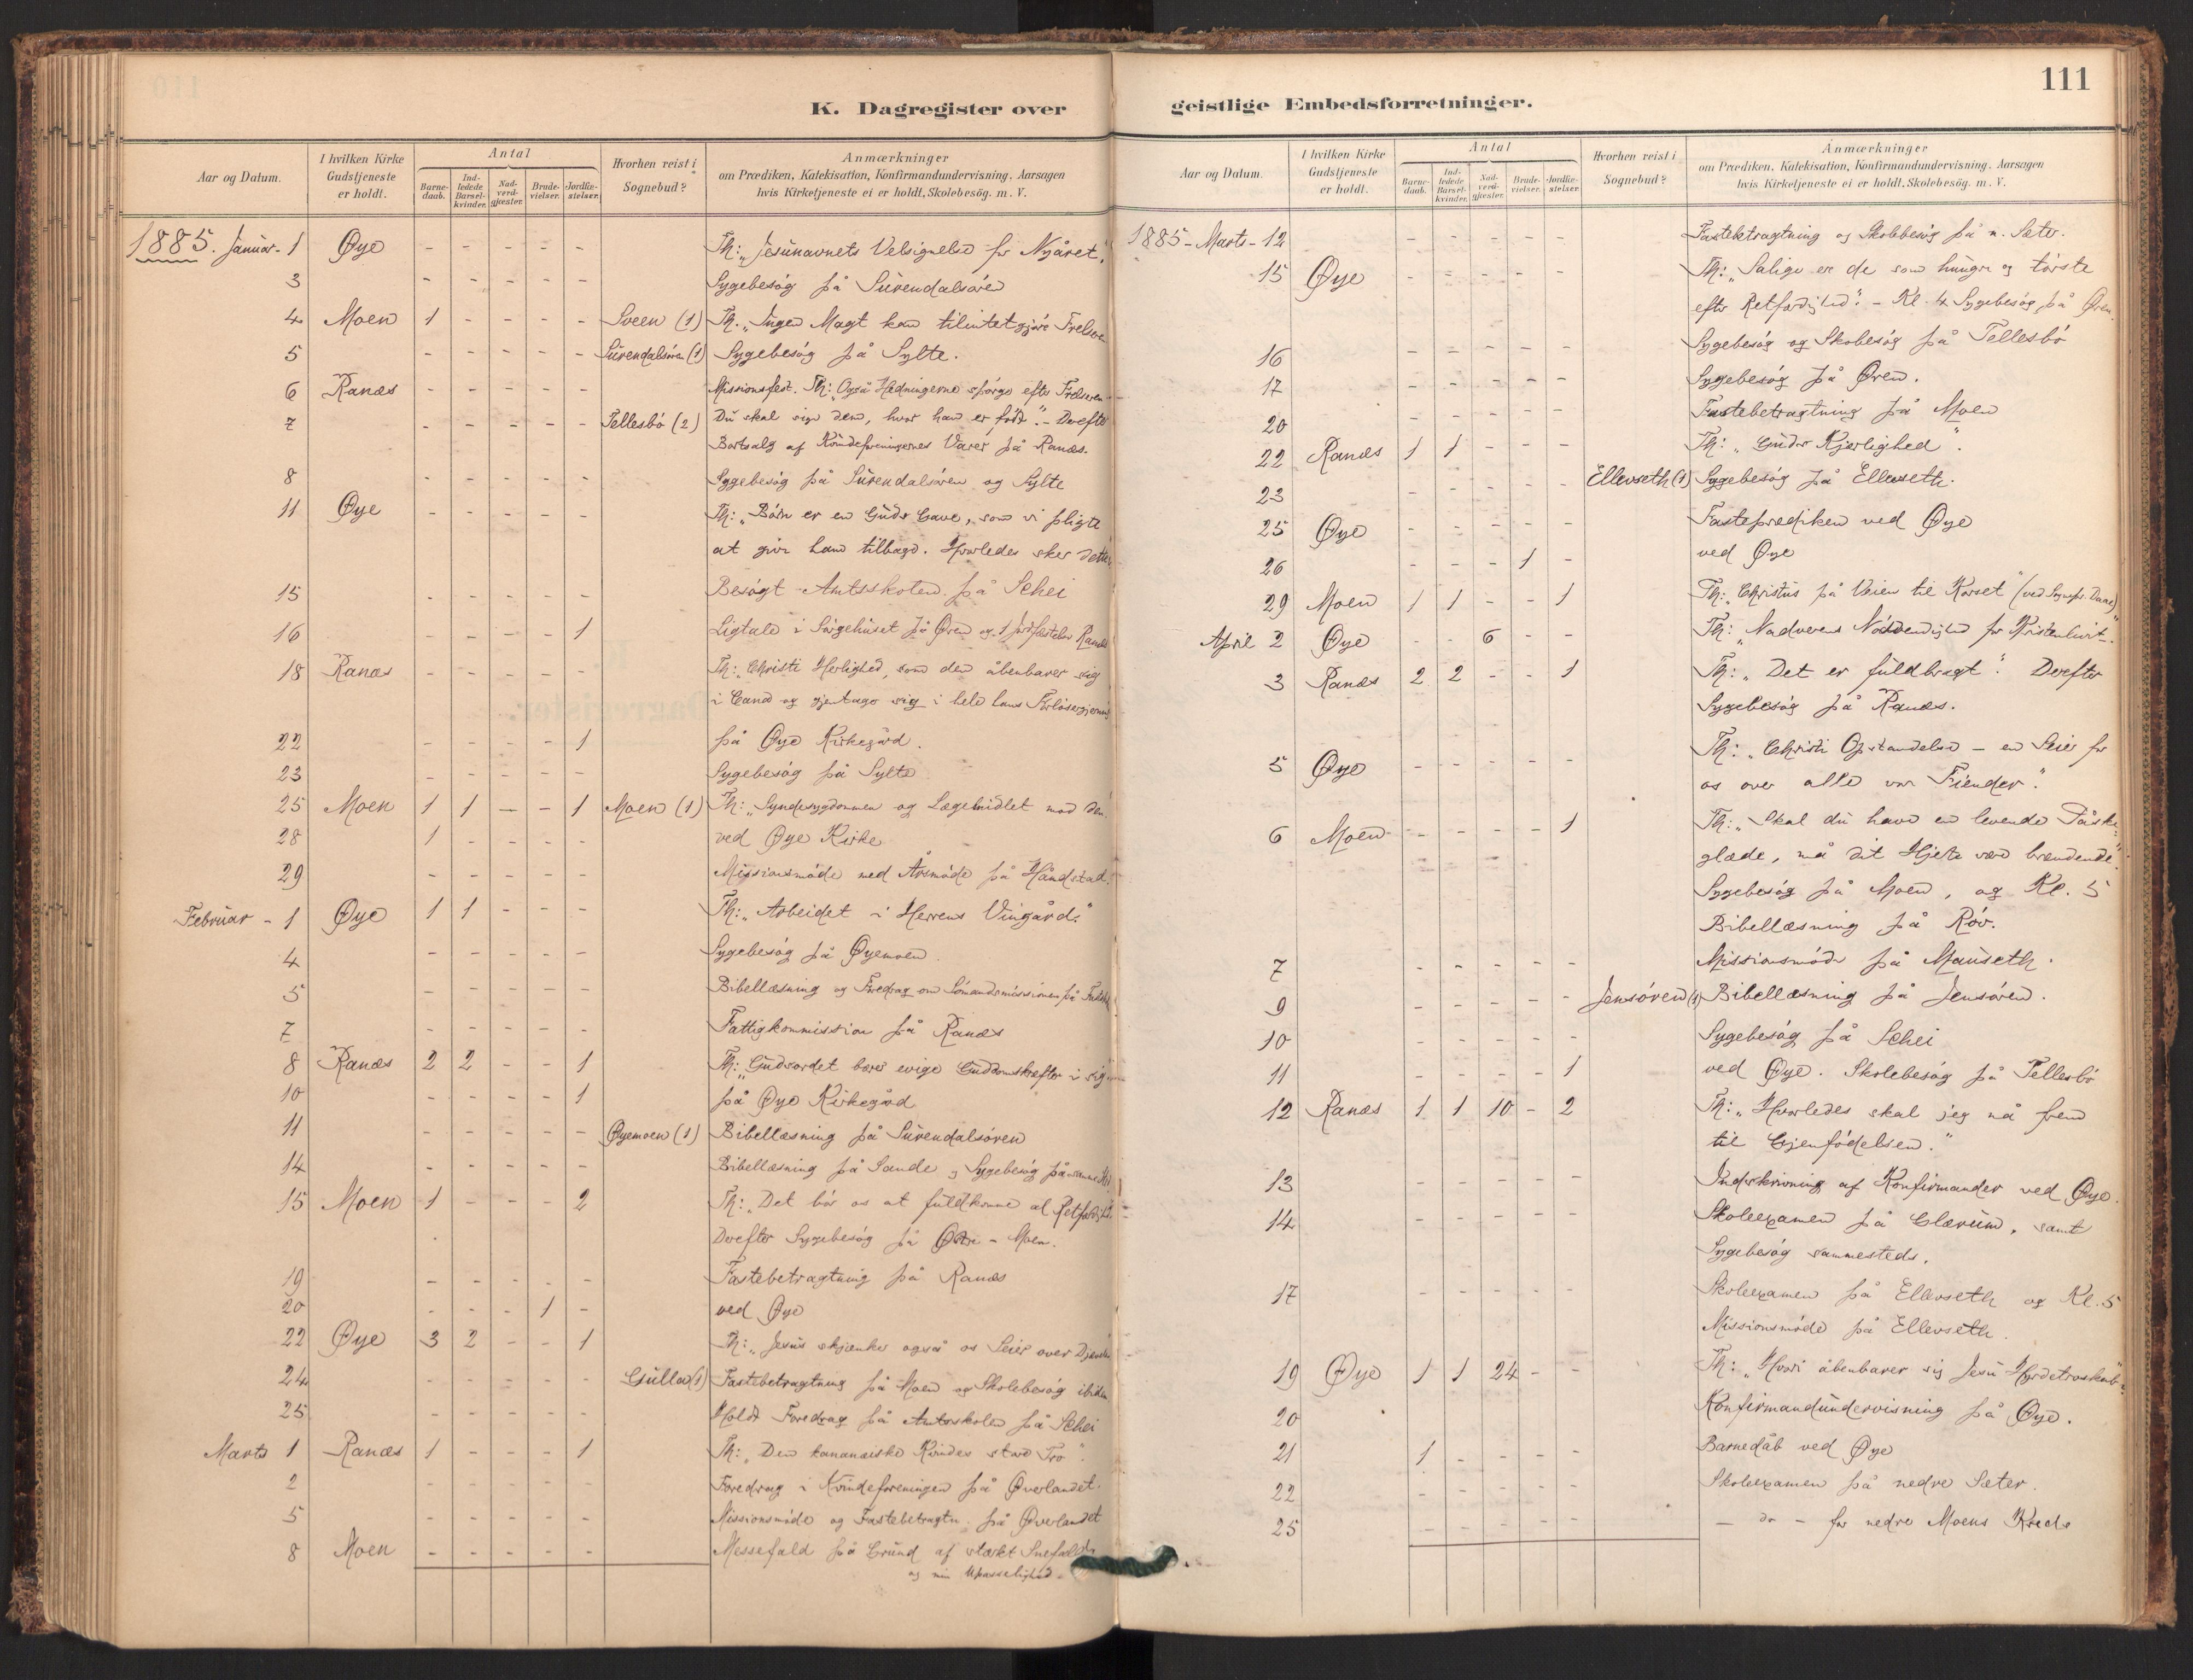 111
K. Dagregister over geistlige Embedsforretninger.
Aar og Datum. I hvilken Kirke Gudstjeneste er holdt. Antal Barnedaab. Indledede Barselkvinder. Nadverdgjæster. Brudevielser. Jordfæstelser. Hvorhen reist i Sognebud? Anmærkninger om Prædiken, Katekisation, Konfirmandundervisning, Aarsagen hvis Kirketjeneste ei er holdt, Skolebesög. m. V.
1885. Januar - 1 Øye - - - - - Th: "Jesunavnets Velsignelse for Nyåret."
3 - - - - - Sygebesög på Surendalsören
4 Moen 1 - - - - Sveen (1) Th. "Ingen Magt kan tilintetgjöre Frelseren
5 - - - - - Surendalsören (1) Sygebesög på Sylte.
6 Ranæs - - - - - Missionsfest. Th: "Også Hedningerne spörge efter Frelseren -
7 - - - - - Tellesbö (2) Du skal sige dem, hvor han er född". - Derefter
Bortsalg af Kvindeforeningernes Varer på Ranæs.
8 - - - - - Sygebesög på Surendalsören og Sylte
11 Øye - - - - - Th: "Börn er en Guds Gave, som vi pligte
at give ham tilbage. Hvorledes sker dette
15 - - - - - Besögt Amtsskolen på Schei
16 - - - - 1 Ligtale i Sörgehuset på Ören og 1 Jordfæstelse Ranæs
18 Ranæs - - - - - Th: "Christi Herlighed, som den åbenbarer sig
i Cana og gjentager sig i hele hans Forlösergjerning
22 - - - - 1 på Øye Kirkegård.
23 - - - - - Sygebesög på Sylte
25 Moen 1 1 - - 1 Moen (1) Th: "Syndesygdommen og Lægemidlet mod den.
28 1 - - - - ved Øye Kirke
29 - - - - - Missionsmöde med Årsmöde på Håndstad.
Februar - 1 Øye 1 1 - - - Th: "Arbeidet i Herrens Vingård."
4 - - - - - Sygebesög på Øyemoen.
5 - - - - - Bibellæsning og Foredrag om Sömandsmissionen på
7 - - - - - Fattigkommission på Ranæs
8 Ranæs 2 2 - - 1 Th: "Gudsordet bærer evige Guddomskræfter i sig
10 - - - - 1 på Øye Kirkegård
11 - - - - - Øyemoen (1) Bibellæsning på Surendalsören
14 - - - - - Bibellæsning på Sande og Sygebesög på samme
15 Moen 1 - - - 2 Th: "Det bör os at fuldkomme al Retfærdighed
Derefter Sygebesög på Østre - Moen.
19 - - - - - Fastebetragtning på Ranæs
20 - - - 1 - ved Øye
22 Øye 3 2 - - 1 Th: "Jesus skjænker også os Seier over Djævelen
24 - - - - - Gulla (1) Fastebetragtning på Moen og Skolebesög ibidem
25 - - - - - Holdt Foredrag på Amtsskolen på Schei
Marts 1 Ranæs 1 - - - 1 Th: "Den kananæiske Kvindes store Tro".
2 - - - - - Foredrag i Kvindeforeningen på Øverlandet.
5 - - - - - Missionsmöde og Fastebetragtn. på Øverlandet
8 Moen - - - - - Messefald på Grund af stærkt Snefald
og min Upasselighed.
Aar og Datum. I hvilken Kirke Gudstjeneste er holdt. Antal Barnedaab. Indledede Barselkvinder. Nadverdgjæster. Brudevielser. Jordfæstelser. Hvorhen reist i Sognebud? Anmærkninger om Prædiken, Katekisation, Konfirmandundervisning, Aarsagen hvis Kirketjeneste ei er holdt, Skolebesög. m. V.
1885 - Marts - 12 - - - - - Fastebetragtning og Skolebesög på n. Sæter.
15 Øye - - - - - Th: "Salige ere de som hungre og törste
efter Retfærdighed". - Kl. 4 Sygebesög på Øren.
16 - - - - - Sygebesög og Skobesög på Tellesbö
17 - - - - - Sygebesög på Øren.
20 - - - - - Fastebetragtning på Moen
22 Ranæs 1 1 - - - Th: "Guds Kjerlighed".
23 - - - - - Ellevseth (1) Sygebesög på Ellevseth.
25 Øye - - - - - Fasteprædiken ved Øye
26 - - - 1 - ved Øye
29 Moen 1 1 - - 1 Th: "Christus på Veien til Korset" (ved Sognepr. Daae)
April 2 Øye - - 6 - - Th: "Nadverens Nödvendighed for Kristenlivet".
3 Ranæs 2 2 - - 1 Th: "Det er fuldbragt". Derefter
Sygebesög på Ranæs.
5 Øye - - - - - Th: "Christi Opstandelse - en Seier for
os over alle vor Fiender".
6 Moen - - - - 1 Th: "Skal du have en levende Påske-
glæde, må dit Hjerte være brændende".
Sygebesög på Moen, og Kl. 5
Bibellæsning på Röv.
7 - - - - - Missionsmöde på Mauseth.
9 - - - - - Jensören (1) Bibellæsning på Jensören.
10 - - - - - Sygebesög på Schei
11 - - - - 1 ved Øye. Skolebesög på Tellesbö
12 Ranæs 1 1 10 - 2 Th: "Hvorledes skal jeg nå frem
til Gjenfödelsen."
13 - - - - - Indskrivning af Konfirmander ved Øye.
14 - - - - - Skoleexamen på Glærum, samt
Sygebesög sammesteds.
17 - - - - - Skoleexamen på Ellevseth og Kl. 5
Missionsmöde på Ellevseth.
19 Øye 1 1 24 - - Th: "Hvori åbenbarer sig Jesu Hyrdetroskab"
20 Konfirmandundervisning på Øye.
21 1 - - - - Barnedåb ved Øye
22 - - - - - Skoleexamen på nedre Sæter.
25 - - - - - - do - for nedre Moens Kreds